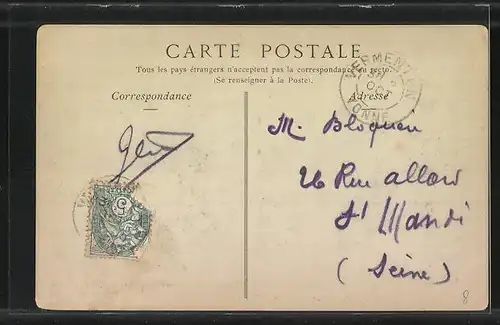 CARTE POSTALE
Tous les pays étrangers n'acceptent pas la correspondance au recto.
(Se renseigner à la Poste).
Correspondance
Adresse
VERMENTON
YONNE
5
M.
26 Rue allard
St Mandé
(Seine)
8